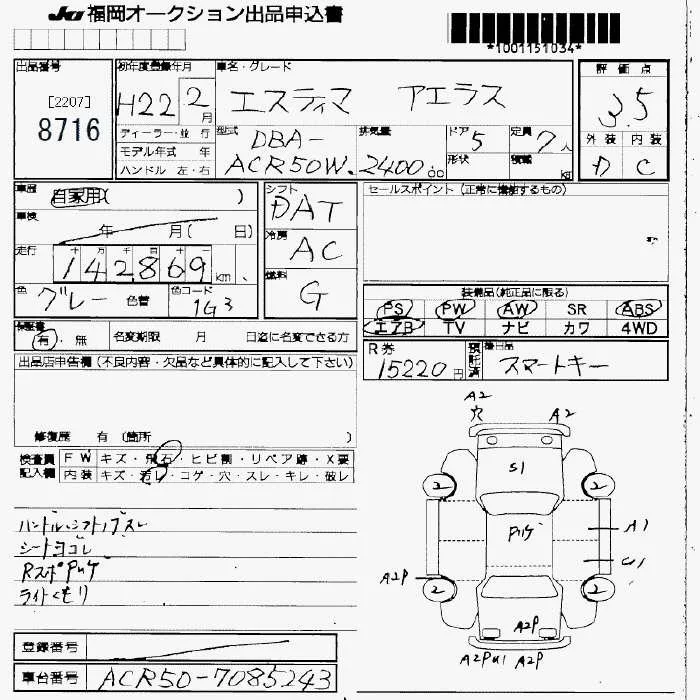 JU 福岡オークション出品申込書
*1001151034*
出品番号
[2207]
8716
初年度登録年月
H22 2月
車名・グレード
エスティマ アエラス
評価点
3.5
外装 内装
D C
ディーラー・並行
モデル年式 年
ハンドル 左・右
型式
DBA-
ACR50W
排気量
2400cc
ドア 5
形状
定員 7人
積載 kg
車歴
自家用( )
車検
年 月( 日)
走行
十万千百十一
142869km
色
グレー
色替
色コード
1G3
シフト
DAT
冷房
AC
燃料
G
セールスポイント(正常に機能するもの)
装備品(純正品に限る)
PS PW AW SR ABS
エアB TV ナビ カワ 4WD
保証書
有・無
名変期限 月 日迄に名変できる方
R券
15220円
預託済
後日品
スマートキー
出品店申告欄(不良内容・欠品など具体的に記入して下さい)
修復歴 有 (箇所 )
検査員記入欄
FW キズ・飛石・ヒビ割・リペア跡・X要
内装 キズ・汚レ・コゲ・穴・スレ・キレ・破レ
ハンドル・シフトノブスレ
シートヨゴレ
Rスポ Pハゲ
ライトくもり
登録番号
車台番号
ACR50-7085243
A2
穴
A2
S1
2
2
Pハゲ
A1
U1
A2P
2
2
A2P
A2P
A2P